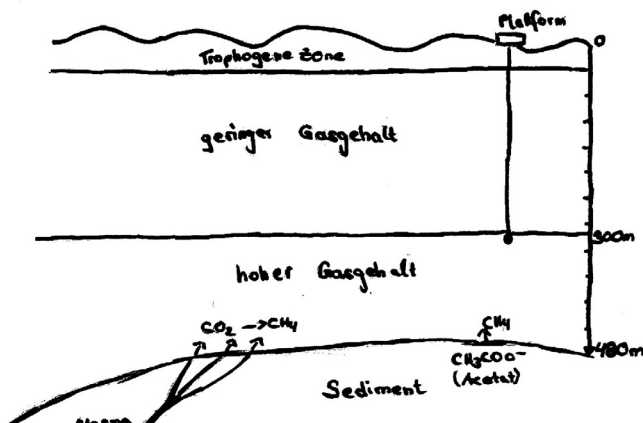 Platform
0
Trophogene Zone
geringer Gasgehalt
300m
hoher Gasgehalt
CO₂ → CH₄
CH₄
480m
CH₃COO⁻
(Acetat)
Sediment